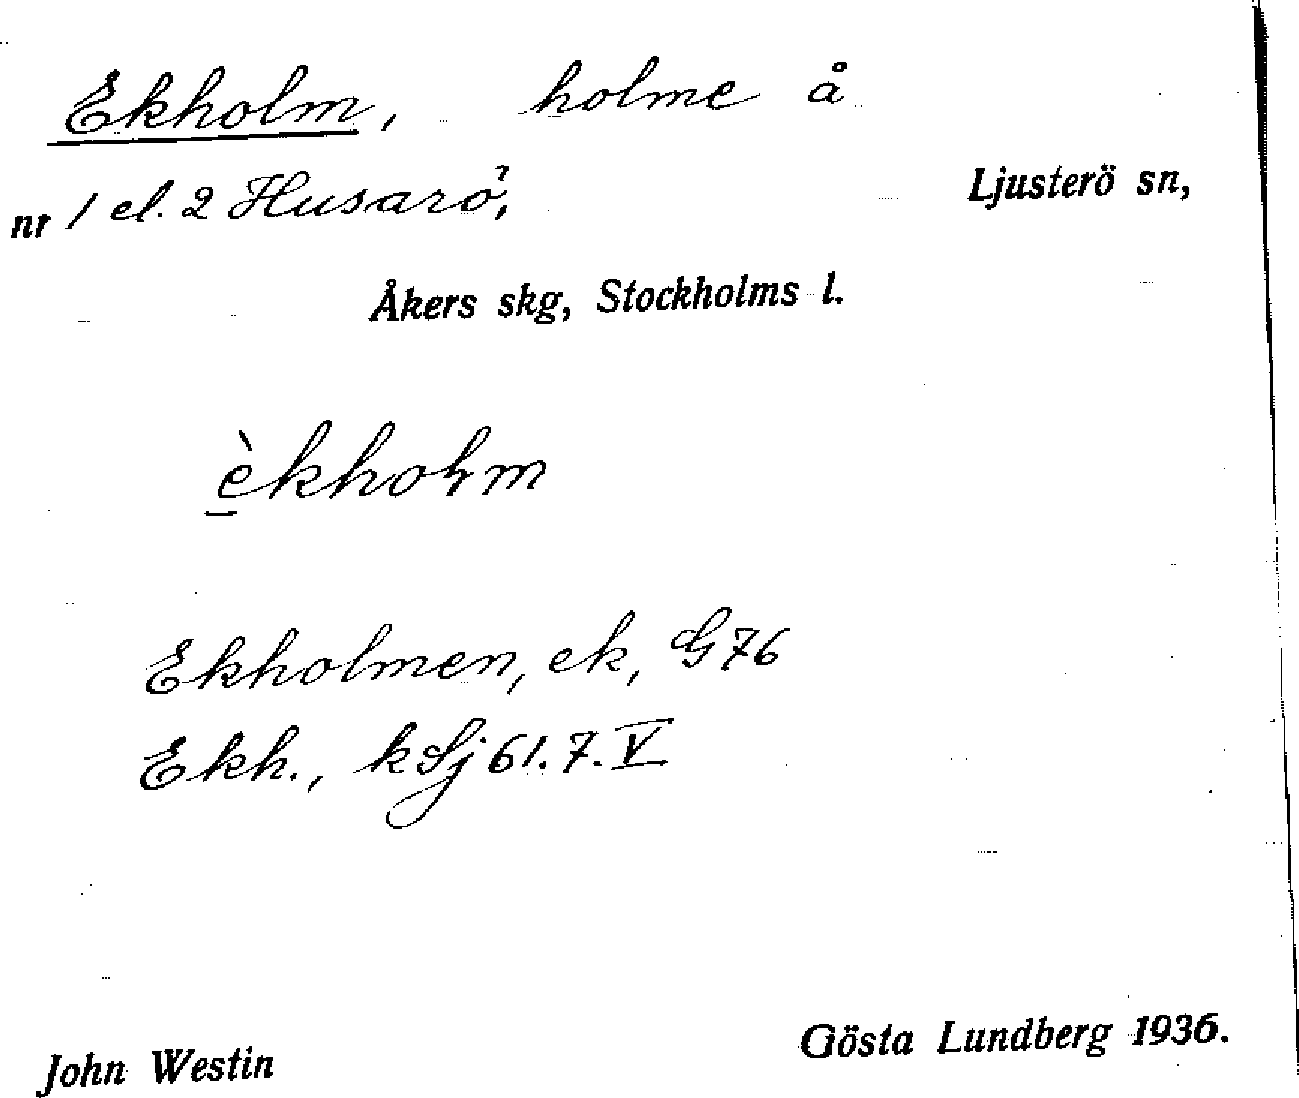 Ekholm, holme å
nr 1 el. 2 Husarö, Ljusterö sn,
Åkers skg, Stockholms l.
èkholm
Ekholmen, ek, G 76
Ekh., k Sj 61. 7. V
John Westin Gösta Lundberg 1936.